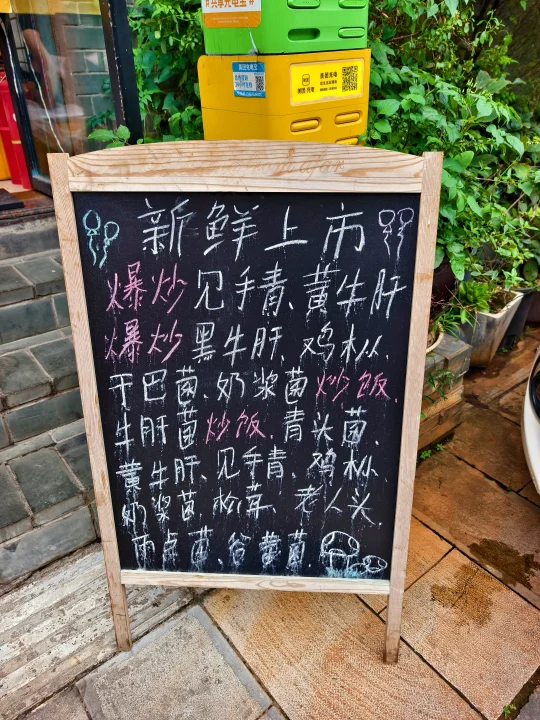 #共享充电宝#
美团充电
新鲜上市
爆炒见手青、黄牛肝
爆炒黑牛肝、鸡枞、
干巴菌、奶浆菌炒饭、
牛肝菌炒饭、青头菌、
黄牛肝、见手青、鸡枞、
奶浆菌、松茸、老人头、
雨点菌、谷黄菌、